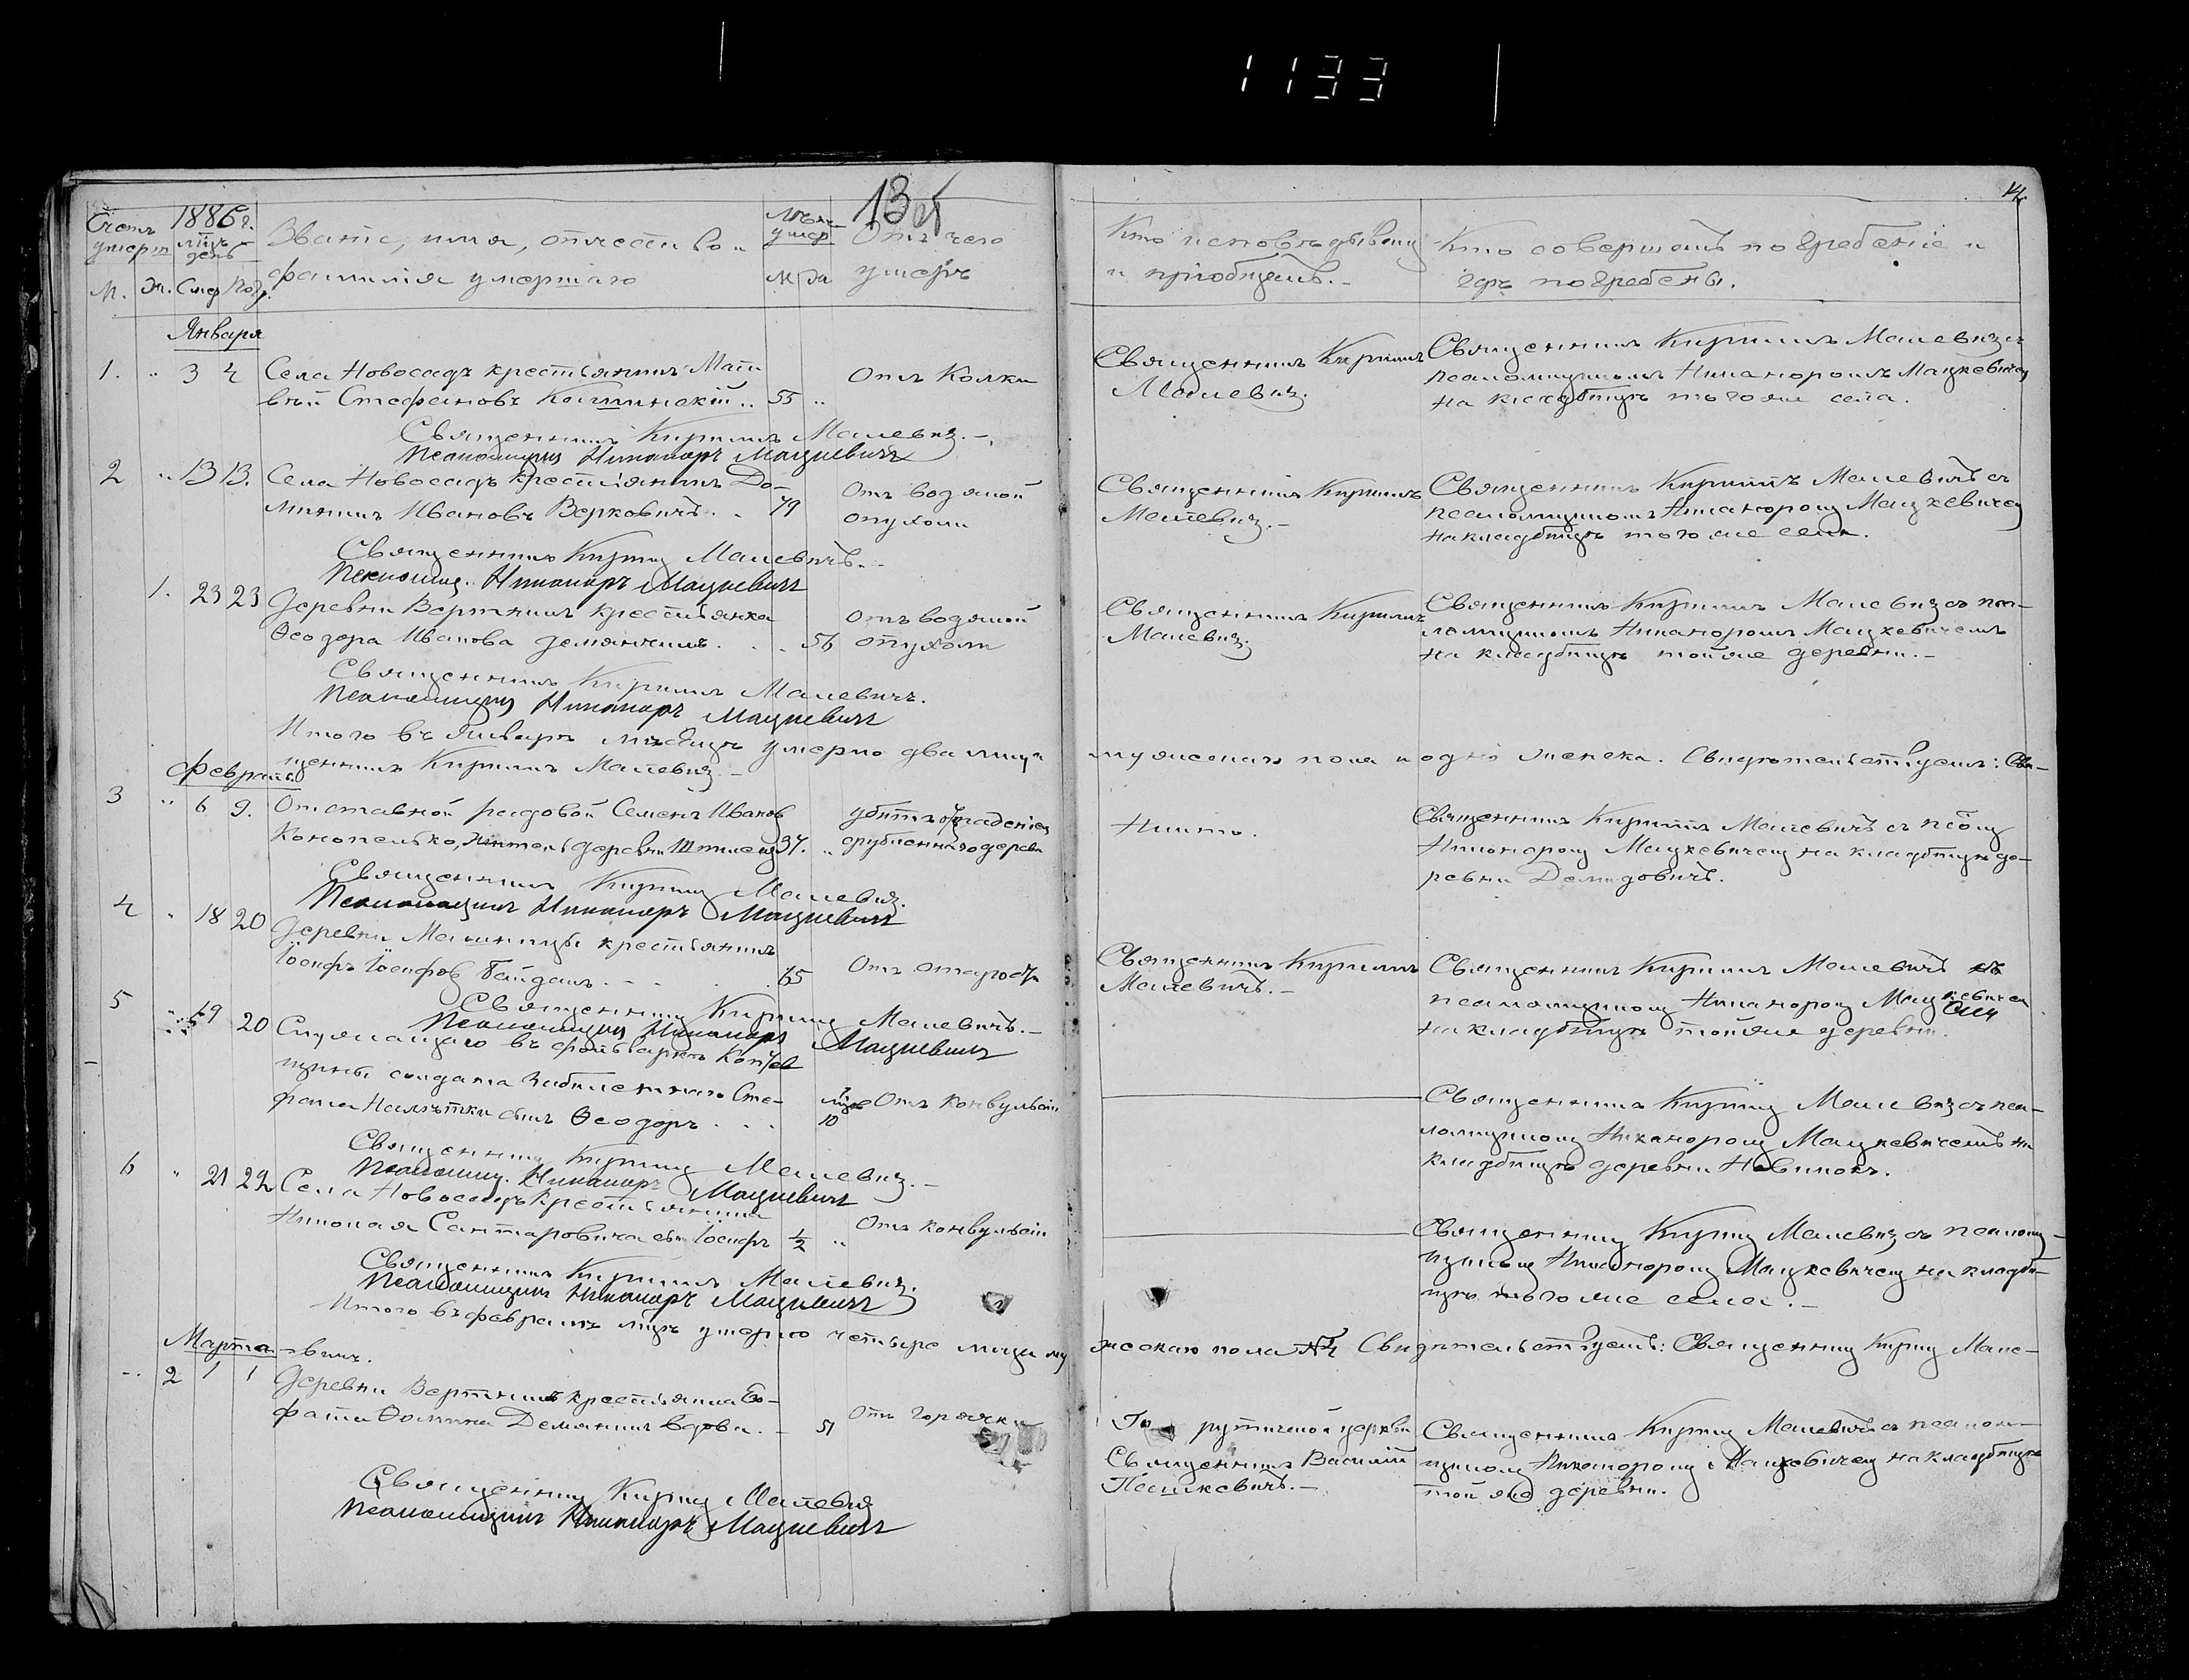 1133
13 об
14.
Счетъ умерш.
1886 г.
мцъ и день
Званіе, имя, отчество и фамилія умершаго
Лѣта умер.
Отъ чего умеръ
Кто исповѣдывалъ и пріобщалъ.-
Кто совершалъ погребеніе и гдѣ погребены.
М. Ж. Смер. Погр.
М Ж
Января
1. " 3 4 Села Новосадъ крестьянинъ Мат-
вѣй Стефановъ .. 55 ..
Отъ Колки
Священникъ Кириллъ
Малевич.
Священникъ Кириллъ Малевич съ
псаломщикомъ Никаноромъ Мацкевичем
на кладбищѣ того же села.
Священникъ Кириллъ Малевич.-
Псаломщикъ Никаноръ Мацкевичъ
2 " 13 13. Села Новосадъ крестьянинъ До-
миникъ Ивановъ Верковичъ. . 79
Отъ водяной
опухоли
Священникъ Кириллъ
Малевич.-
Священникъ Кириллъ Малевичъ съ
псаломщикомъ Никаноромъ Мацкевичем
на кладбищѣ того же села.
Священникъ Кирилл Малевичъ.-
Псаломщ. Никаноръ Мацкевичъ
1. 23 23 Деревни Вертникъ крестьянка
Ѳеодора Иванова Демянчикъ. . . 56
Отъ водяной
опухоли
Священникъ Кириллъ
Малевич.
Священникъ Кириллъ Малевич съ пса-
ломщикомъ Никаноромъ Мацкевичемъ
на кладбищѣ той же деревни.-
Священникъ Кириллъ Малевичъ.
Псаломщикъ Никаноръ Мацкевичъ
Итого въ Январѣ мѣсяцѣ умерло два лица мужескаго пола и одно женска. Свидѣтельствуемъ: Свя-
щенникъ Кириллъ Малевич.-
Февраль
3 " 6 9. Отставной рядовой Семенъ Иванов
Конопелько, житель деревни 37. "
убитъ паденіем
срубленнаго дерева
Никто.
Священникъ Кириллъ Малевичъ съ псаом
Никанором Мацкевичем на кладбищѣ де-
ревни Демидовичъ.
Священникъ Кирилл Малевич.
Псаломщикъ Никаноръ Мацкевичъ
4 " 18 20 Деревни крестьянинъ
Іосифъ Іосифов Гайдамъ. - - . 65
Отъ старости
Священникъ Кириллъ
Малевичъ.-
Священникъ Кириллъ Малевичъ съ
псаломщиком Никанором Мацкевичем
на кладбищѣ той же деревни.
Священник Кирилл Малевичъ.-
Псаломщикъ Никаноръ Мацкевичъ
5 19 20 Служащаго въ фольваркѣ
солдата Сте-
фана сынъ Ѳеодоръ . . . мцев 10
Отъ конвульсіи
Священникъ Кирилл Малевич съ пса-
ломщиком Никанором Мацкевичемъ на
кладбищѣ деревни Навинокъ.
Священник Кирилл Малевич.-
Псаломщ. Никаноръ Мацкевичъ
6 " 21 22 Села Новосадъ крестьянина
Николая Сантаровича сын Іосифъ 1/2 "
Отъ конвульсіи
Священник Кирилл Малевич съ псалом-
щиком Никанором Мацкевичем на кладби-
щѣ того же села.-
Священникъ Кириллъ Малевич.
Псаломщикъ Никаноръ Мацкевичъ
Итого въ февралѣ мцѣ умерло четыре лица му жескаго пола №4 Свидѣтельствуемъ: Священник Кирилл Мале-
вичъ.
Марта
" 2 1 1 Деревни Вертникъ крестьянина
Демянчик вдова. - 51
Отъ горячки
церкви
Священникъ Василій
Пашкевичъ.-
Священникъ Кирилл Малевичъ съ псалом-
щиком Никанором Мацкевичем на кладбищѣ
той же деревни.
Священник Кирилл Малевич
Псаломщикъ Никаноръ Мацкевичъ